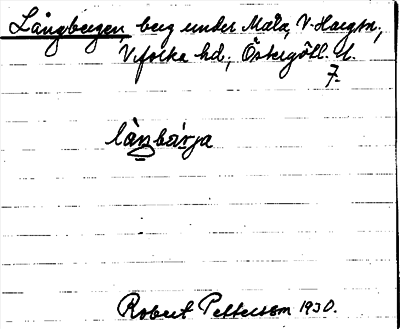 Långbergen berg under Måla, V. Hargsn.,
Vifolka hd., Östergötl. l.
7.
lån̲bær̲ja
Robert Pettersson 1930.